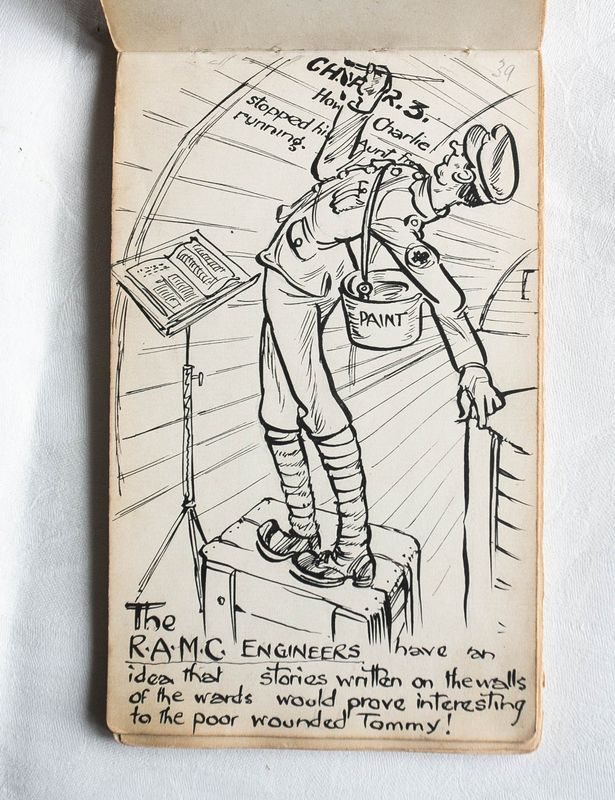 39
CHAP R. 3.
How Charlie
stopped hi Aunt
running.
PAINT
The
R.A.M.C. ENGINEERS have an
idea that stories written on the walls
of the wards would prove interesting
to the poor wounded Tommy!